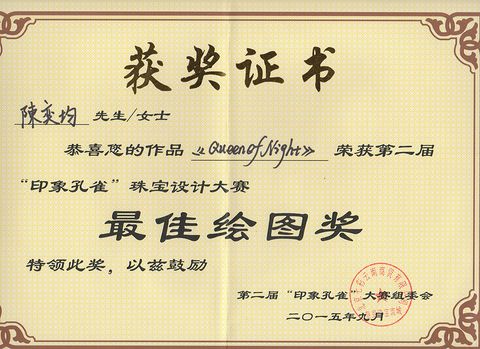 获奖证书
陳奕均 先生/女士
恭喜您的作品 《Queen of Night》 荣获第二届
“印象孔雀”珠宝设计大赛
最佳绘图奖
特领此奖，以兹鼓励
第二届“印象孔雀”大赛组委会
二〇一五年九月